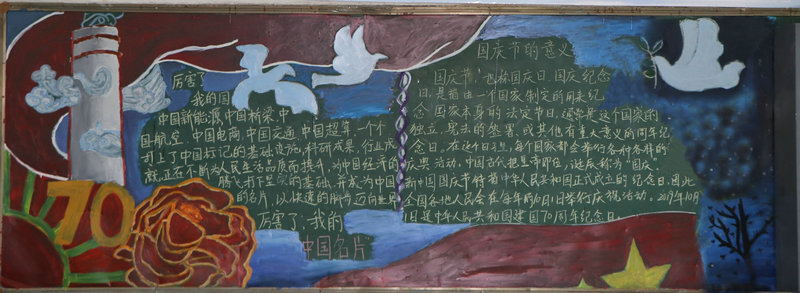 厉害了
我的国
中国新能源 中国桥梁 中
国航空 中国电商 中国交通 中国超算 一个个
打上了中国标记的基础设施、科研成果、行业成
就,正在不断为人民生活品质而提升,为中国经济的
腾飞打下坚实的基础,并成为中国
的名片,以快速的脚步迈向世界
厉害了,我的
中国名片
70
国庆节的意义
国庆节,也称国庆日、国庆纪念
日,是指由一个国家制定的用来纪
念国家本身的法定节日,通常是这个国家的
独立、宪法的签署,或其他有重大意义的周年纪
念日。在这个日子里,每个国家都会举行各种各样的
庆祝活动。中国古代把皇帝即位、诞辰称为"国庆"。
新中国国庆节特指中华人民共和国正式成立的纪念日,因此
全国各地人民会在每年的10月1日举行庆祝活动。2019年10月
1日是中华人民共和国建国70周年纪念日。